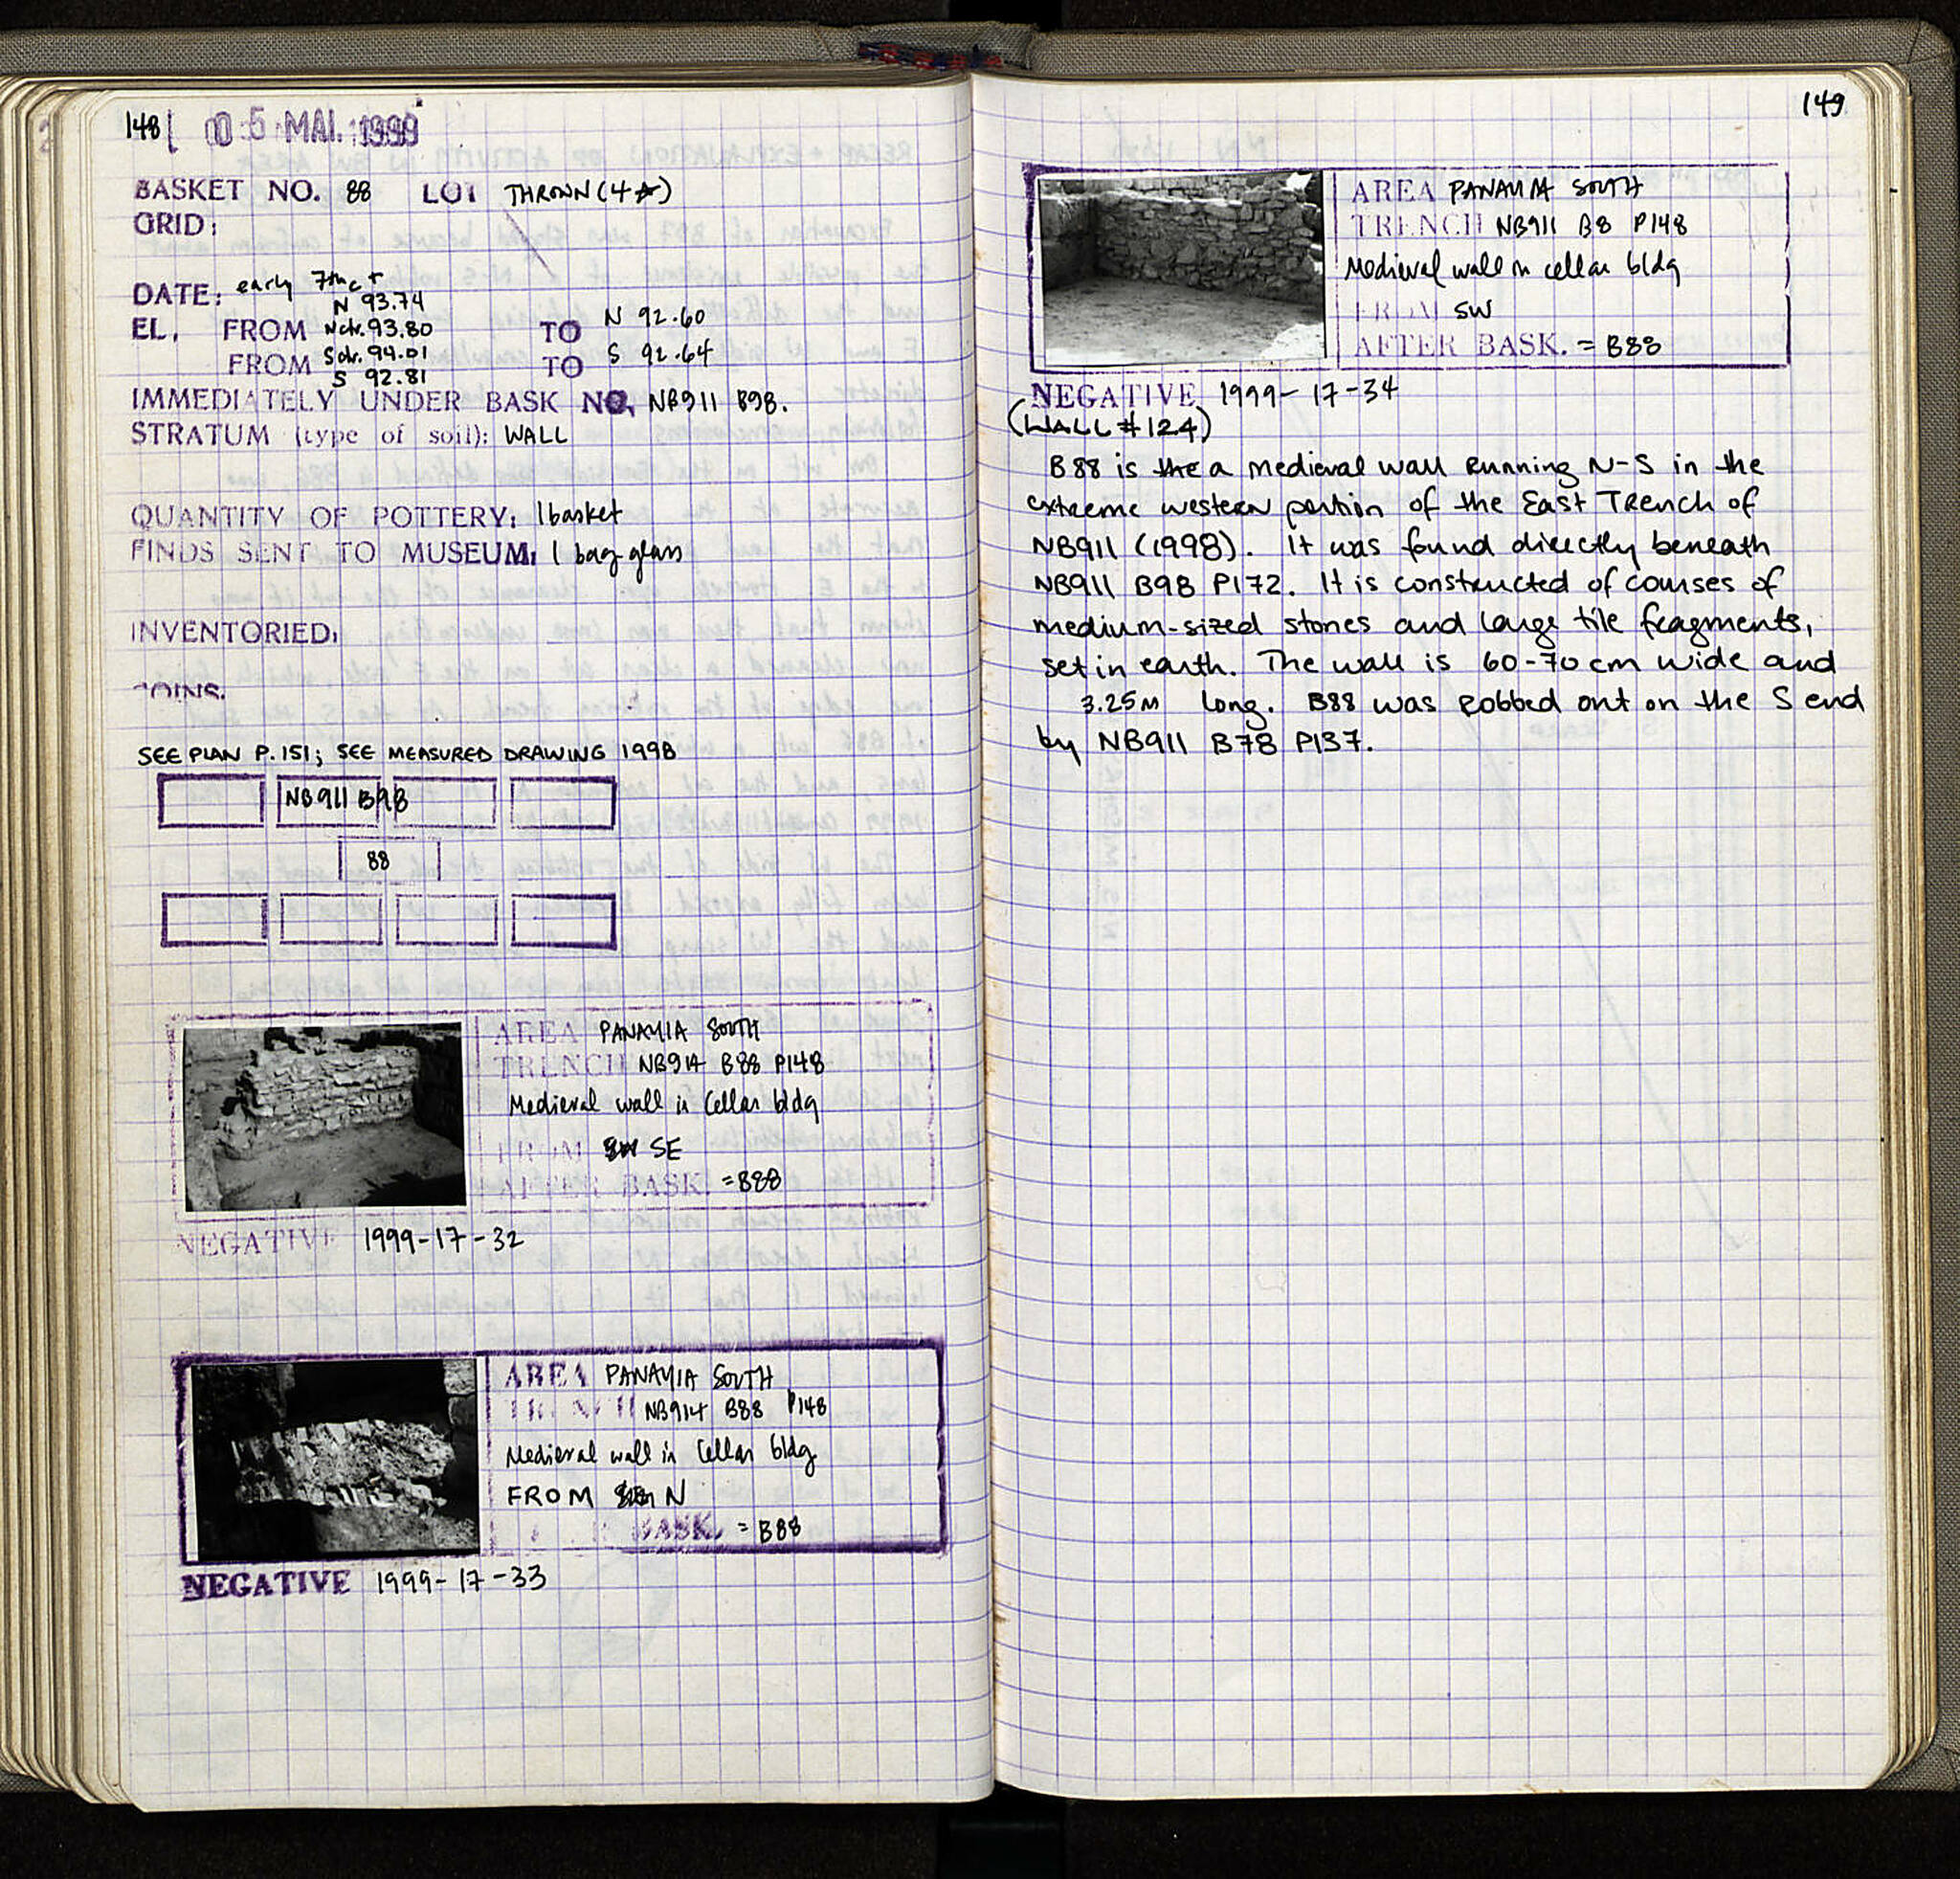 148 05 MAI. 1999
BASKET NO. 88 LOT THROWN (4
GRID:
DATE: early 7th c +
N 93.74
EL. FROM N ctr. 93.80 TO N 92.60
FROM S ctr. 94.01 TO S 92.64
S 92.81
IMMEDIATELY UNDER BASK NO. NB911 B98.
STRATUM (type of soil): WALL
QUANTITY OF POTTERY: 1 basket
FINDS SENT TO MUSEUM: 1 bag glass
INVENTORIED:
COINS.
SEE PLAN P.151; SEE MEASURED DRAWING 1998
NB911 B98
88
AREA PANAYIA SOUTH
TRENCH NB914 B88 P148
Medieval wall in Cellar bldg
FROM SE
AFTER BASK. = B88
NEGATIVE 1999-17-32
AREA PANAYIA SOUTH
TRENCH NB914 B88 P148
Medieval wall in Cellar bldg
FROM N
BASK. = B88
NEGATIVE 1999-17-33
149
AREA PANAYIA SOUTH
TRENCH NB911 B8 P148
Medieval wall in cellar bldg
FROM SW
AFTER BASK. = B88
NEGATIVE 1999-17-34
(WALL #124)
B88 is the a medieval wall running N-S in the
extreme western portion of the East Trench of
NB911 (1998). It was found directly beneath
NB911 B98 P172. It is constructed of courses of
medium-sized stones and large tile fragments,
set in earth. The wall is 60-70 cm wide and
3.25m long. B88 was robbed out on the S end
by NB911 B78 P137.